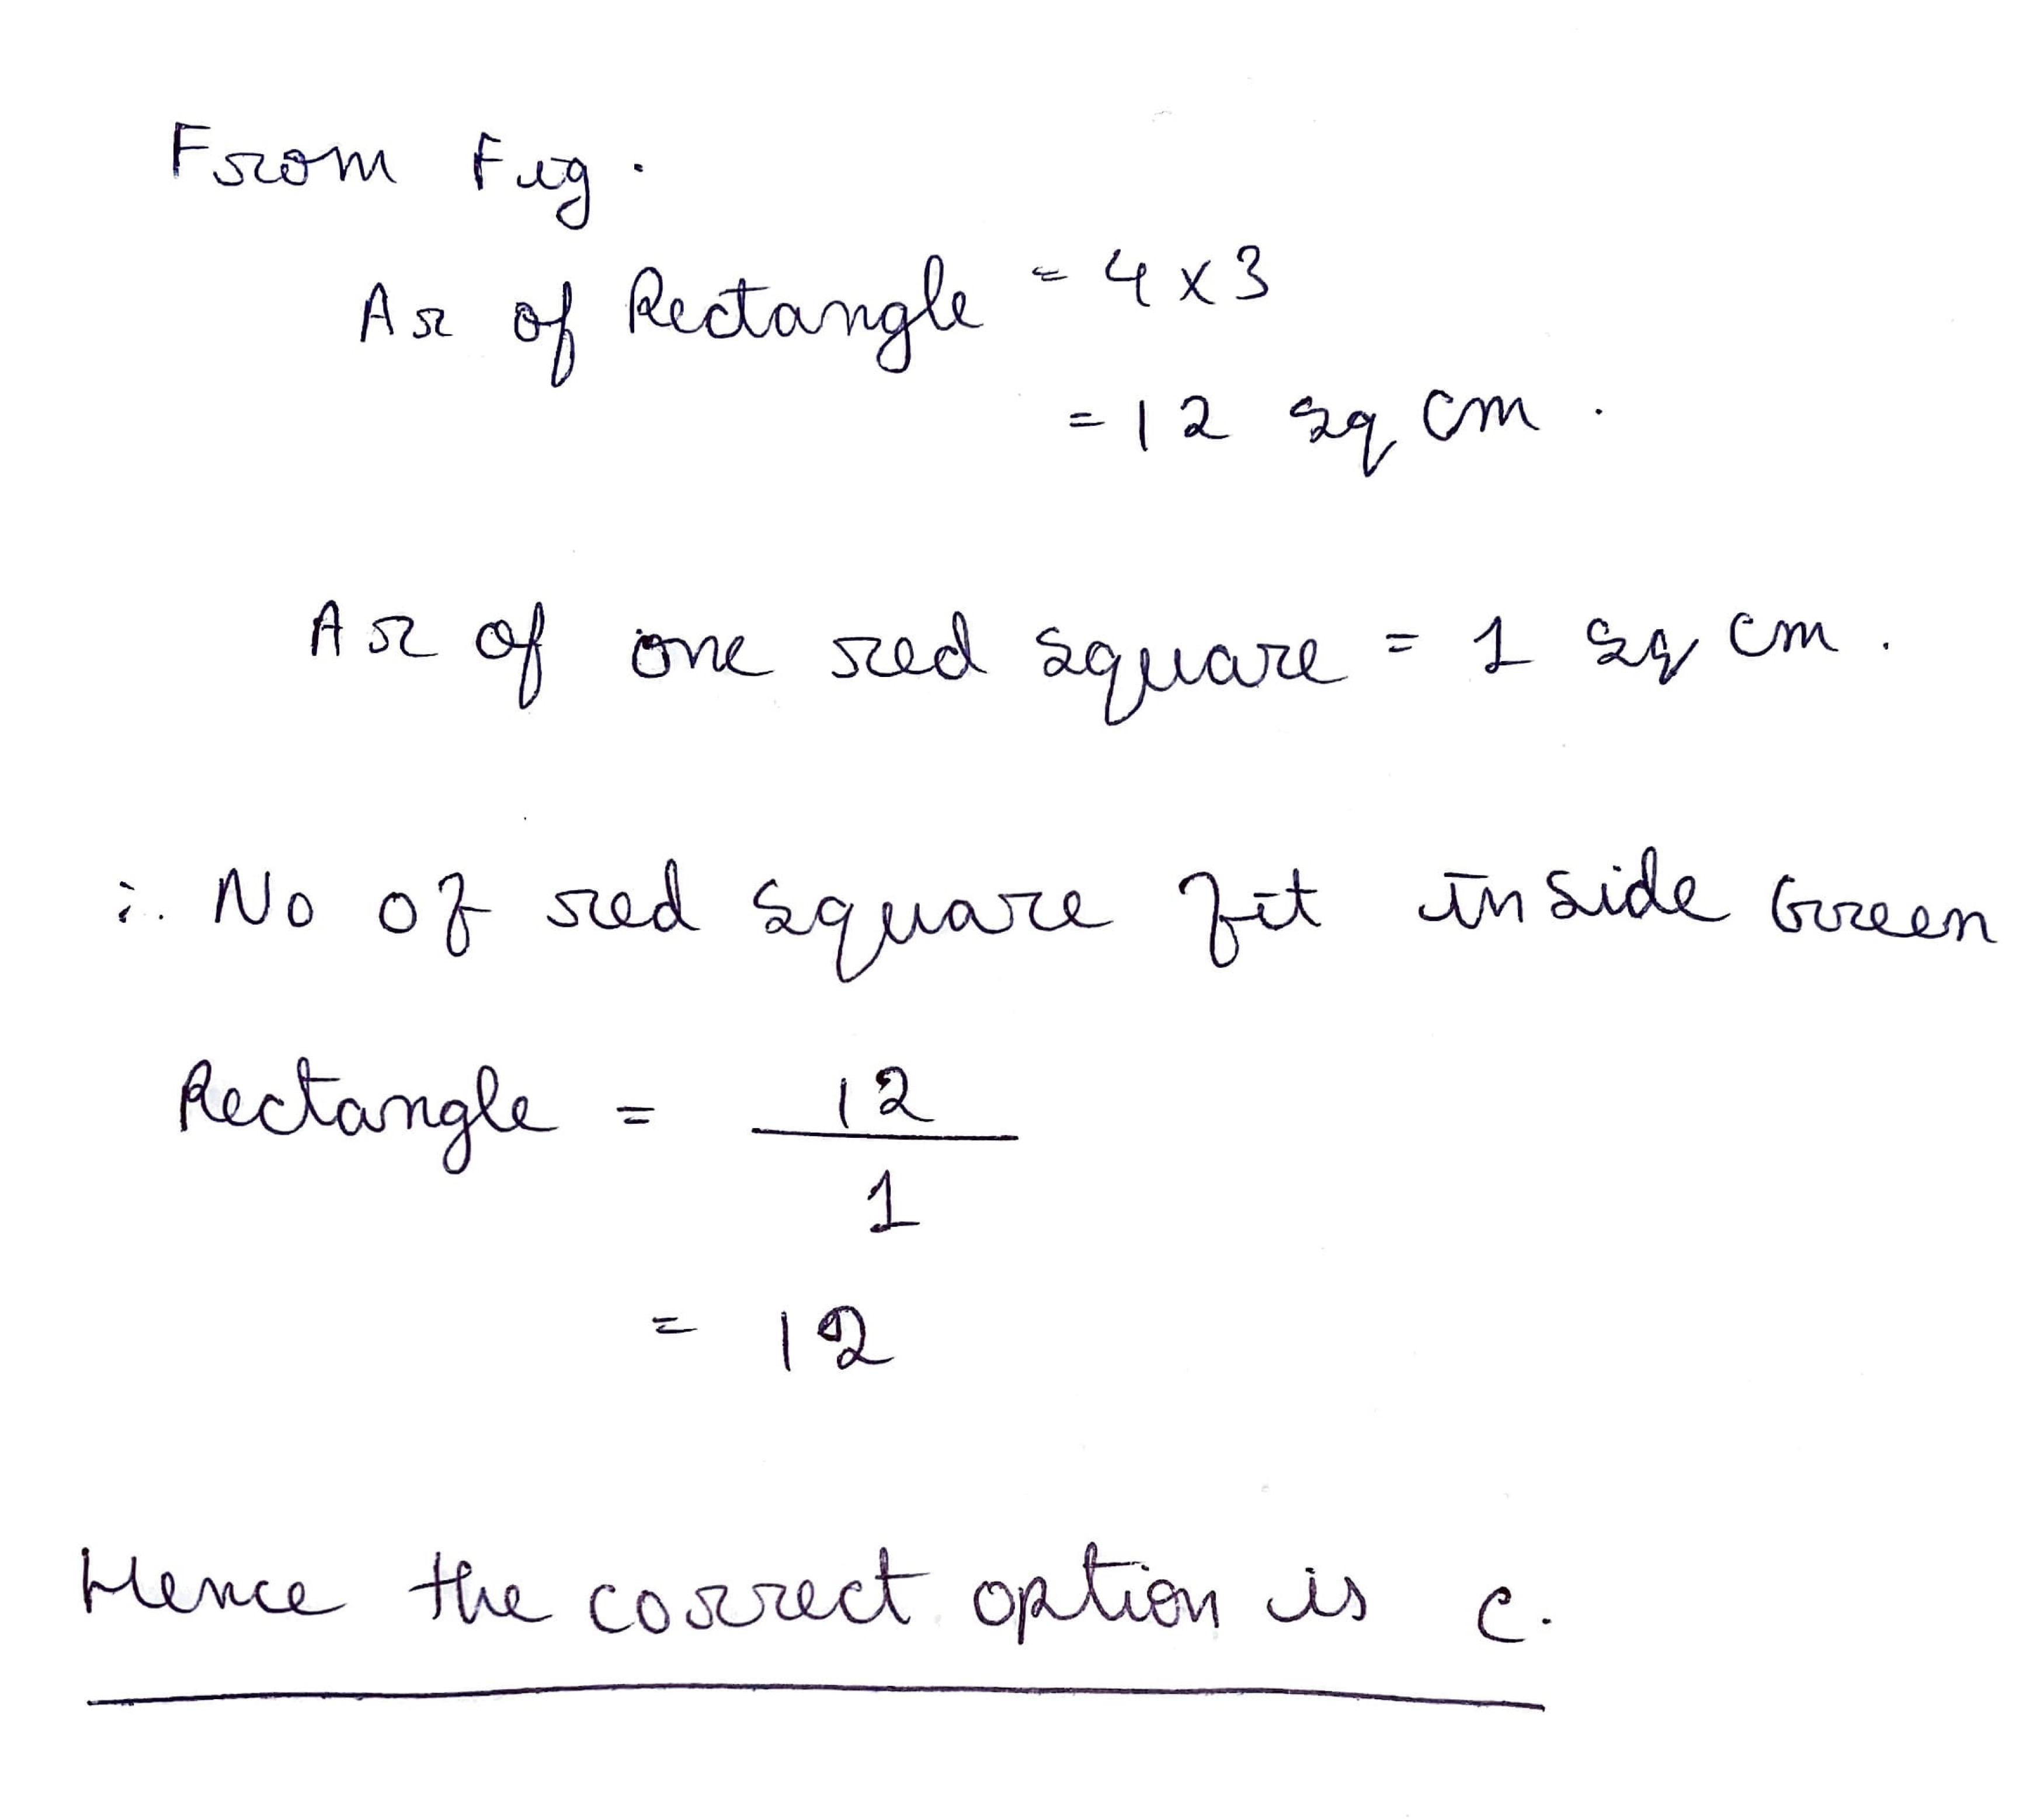 From Fig.
Ar of Rectangle = 4 x 3
= 12 sq cm.
Ar of one red square = 1 sq cm.
∴ No of red square fit inside Green
Rectangle = 12
1
= 12
Hence the correct option is c.